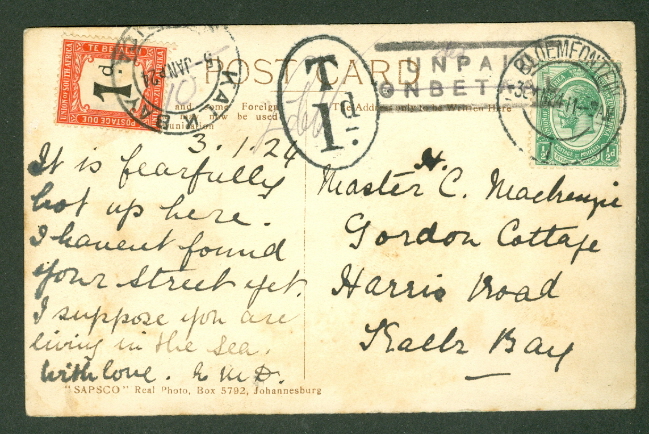 POST CARD
UNPAID
ONBETAALD
BLOEMFONTEIN
T
1d.
TE BETALEN
1d.
POSTAGE DUE
UNION OF SOUTH AFRICA
KALK BAY
JAN 24
and some Foreign
now be used
The Address only to be Written Here
3.1.24
It is fearfully
hot up here.
I havent found
your street yet.
I suppose you are
living in the sea.
With love.
Master C. H. Mackenzie
Gordon Cottage
Harris Road
Kalk Bay
"SAPSCO" Real Photo, Box 5792, Johannesburg